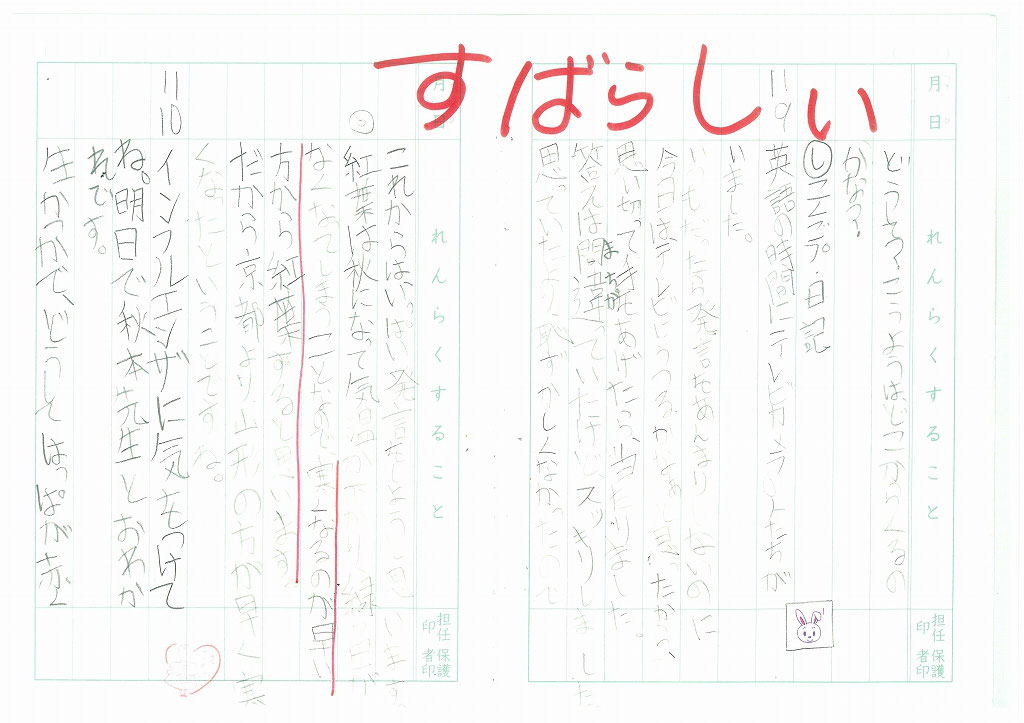 すばらしい
月日
れんらくすること
担任印
保護者印
どうして?こうようはどこからくるの
かなっ?
し ニエデ・日記
11 9
英語の時間にテレビカメラの人たちが
いました。
いつもだったら発言をあんまりしないのに
今日はテレビにうつるかなぁと思ったから、
思い切って手をあげたら、当たりました。
答えは間違っていたけど、スッキリしました
まちが
思っていたとより恥ずかしくなかったので
月日
れんらくすること
担任印
保護者印
これからはいっぱい発言をしようと思います。
紅葉は秋になって気温が下がり緑色が
なくなってしまうことなので実になるのが早い
方から紅葉すると思います。
だから京都より山形の方が早く実
くなったということですね。
11 10
インフルエンザに気をつけて
ね。明日で秋本先生とおわか
れです。
生かつかで、どうしてはっぱが赤